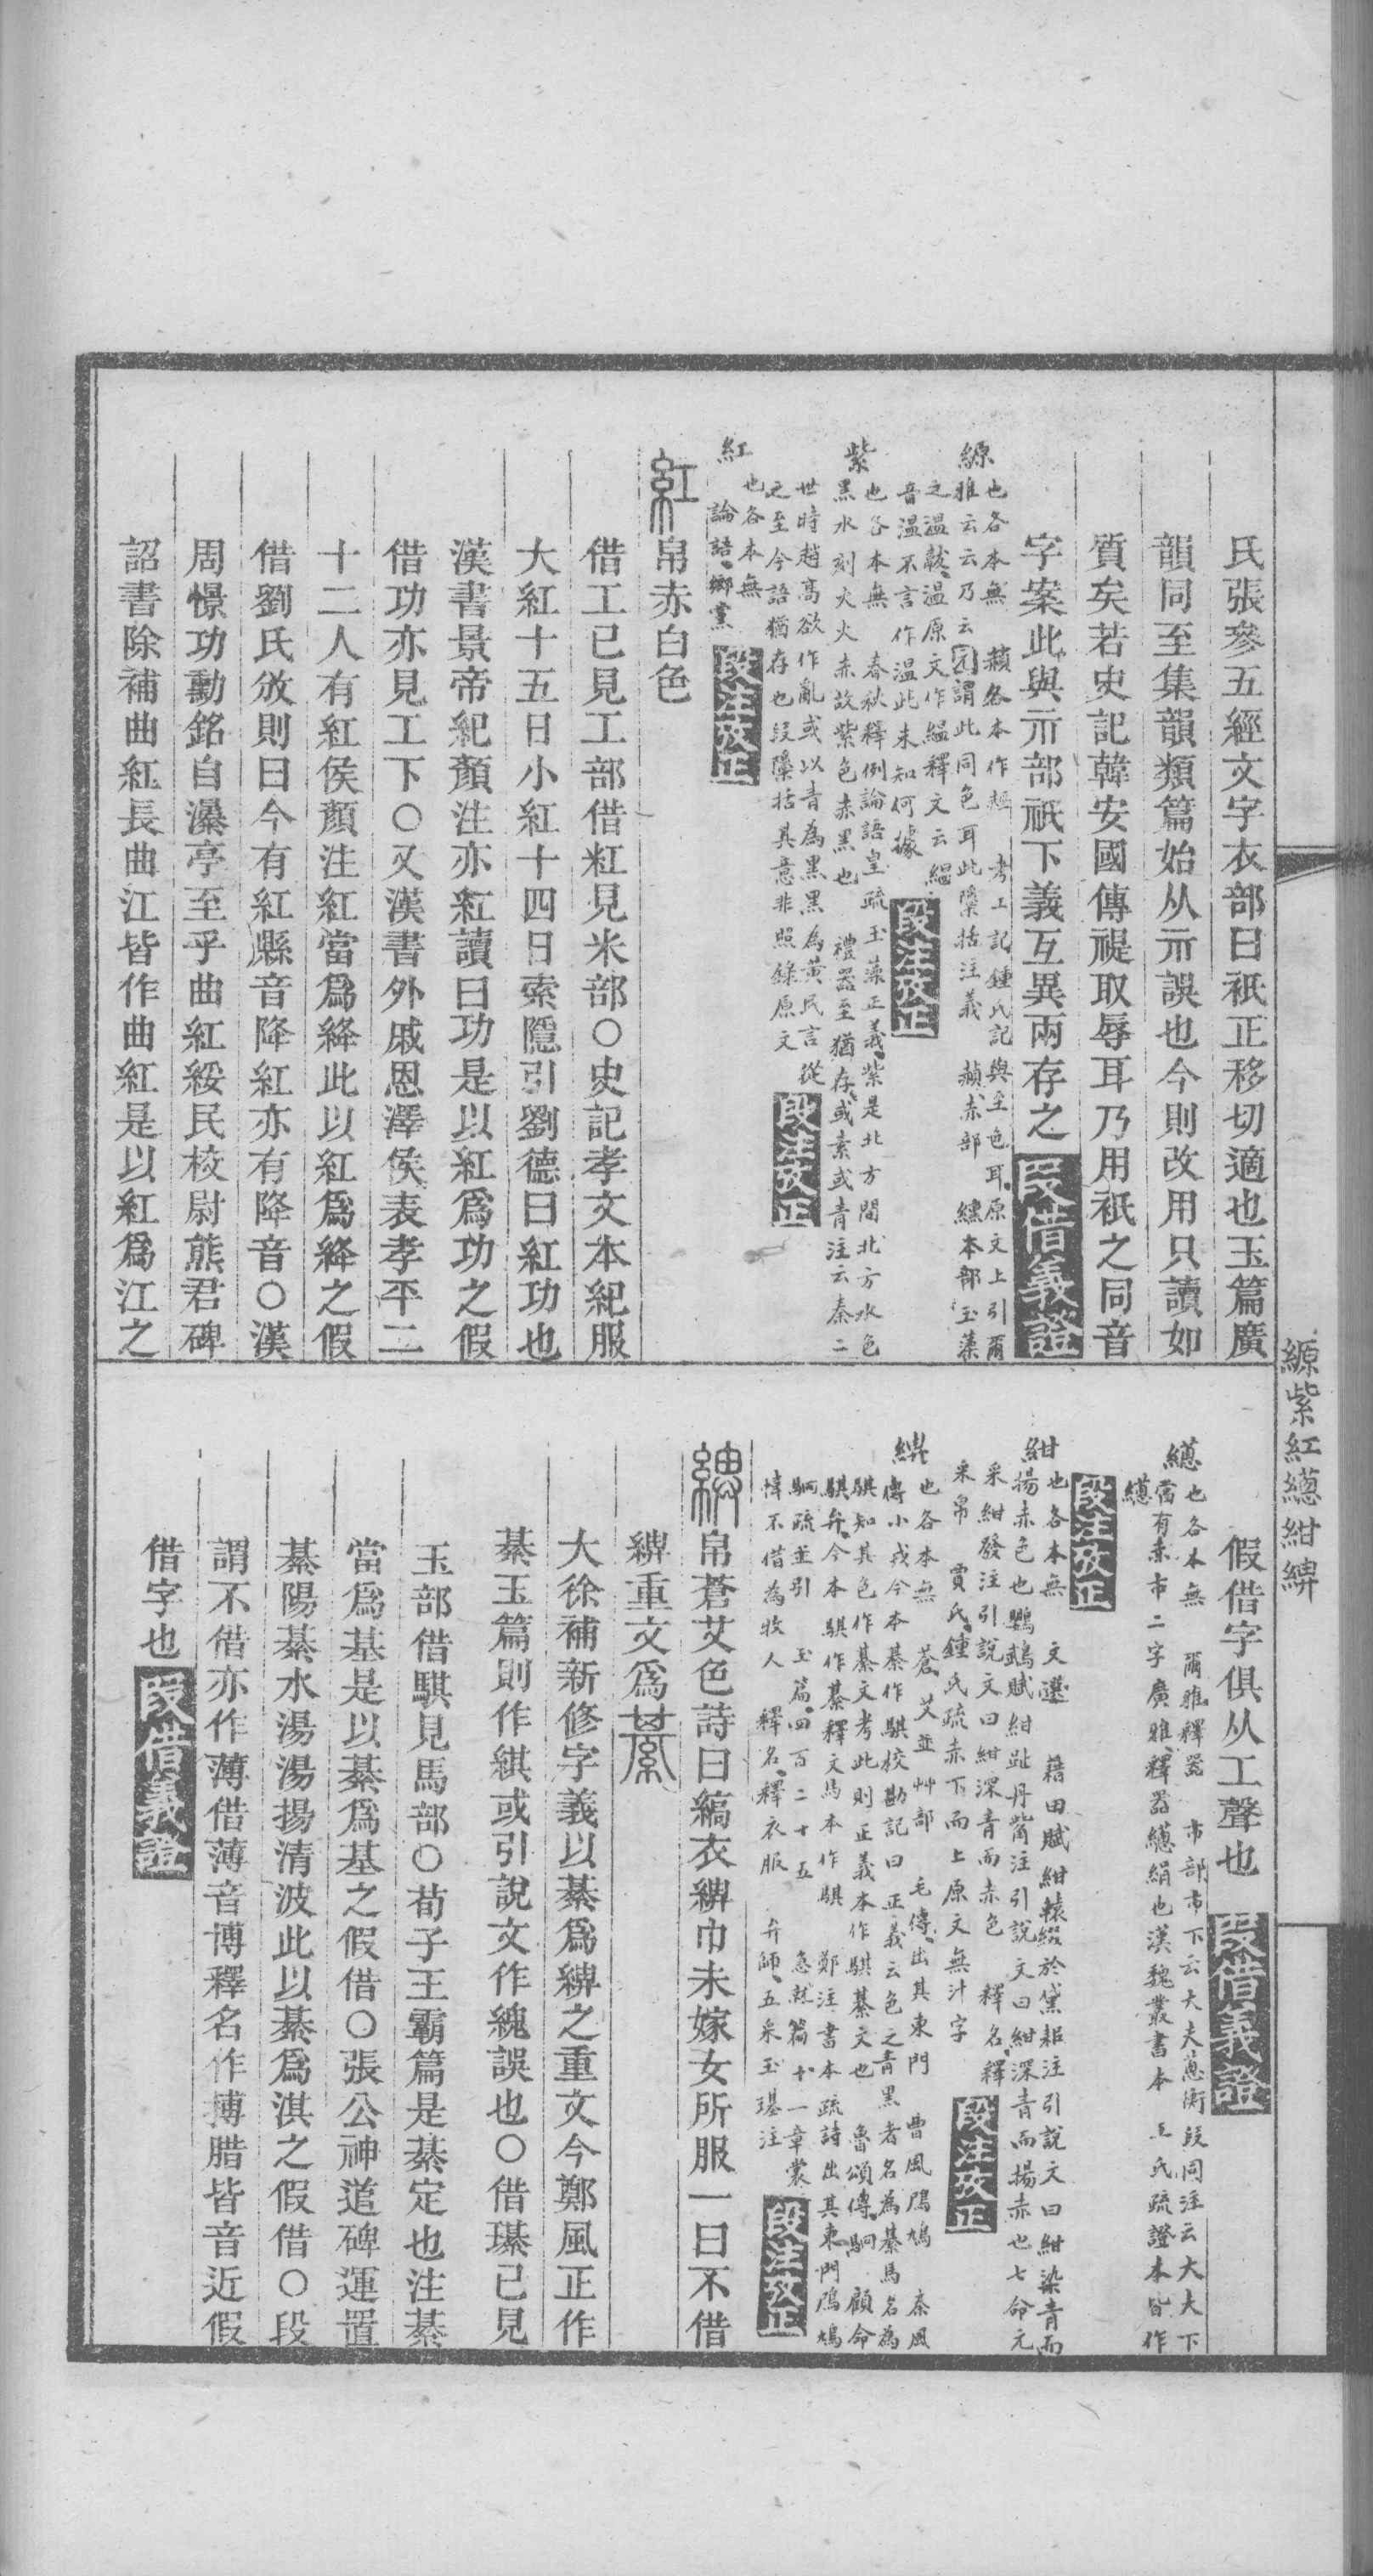 氏張參五經文字衣部曰衹正移切適也玉篇廣
韻同至集韻類篇始从示誤也今則改用只讀如
質矣若史記韓安國傳禔取辱耳乃用衹之同音
字案此與示部祇下義互異兩存之 段借義證
縓
也各本無 赬各本作經 考工記鍾氏記與至色耳原文上引爾
雅云云乃云 謂此同色耳此隱括注義 赬赤部 纁本部玉藻
之溫韍溫原文作緼釋文云緼
音溫不言作溫此未知何據 段注攷正
紫
也各本無 春秋釋例論語皇疏 玉藻正義紫是北方間北方水色
黑水刻火火赤故紫色赤黑也 禮器至猶存或素或青注云秦二
世時趙高欲作亂或以青為黑黑為黃民言從
之至今語猶存也段隱括其意非照錄原文 段注攷正
紅
也各本無
論語鄉黨 段注攷正
紅帛赤白色
借工已見工部借粠見米部○史記孝文本紀服
大紅十五日小紅十四日索隱引劉德曰紅功也
漢書景帝紀顏注亦紅讀曰功是以紅爲功之假
借功亦見工下○又漢書外戚恩澤侯表孝平二
十二人有紅侯顏注紅當爲絳此以紅爲絳之假
借劉氏攽則曰今有紅縣音降紅亦有降音○漢
周憬功勳銘自瀑亭至乎曲紅綏民校尉熊君碑
詔書除補曲紅長曲江皆作曲紅是以紅爲江之
縓紫紅繱紺綥
假借字俱从工聲也 段借義證
繱
也各本無 爾雅釋器 市部市下云大夫蔥衡段同注云大大下
當有赤市二字廣雅釋器繱絹也漢魏叢書本 王氏疏證本皆作
繱 段注攷正
紺
也各本無 文選 藉田賦紺轅綴於黛耜注引說文曰紺染青而
揚赤色也鸚鵡賦紺趾丹觜注引說文曰紺深青而揚赤也七命元
采紺發注引說文曰紺深青而赤色 釋名釋
采帛 賈氏鍾氏疏赤下而上原文無汁字 段注攷正
綥
也各本無 蒼艾並艸部 毛傳出其東門 曹風鳲鳩 秦風
傳小戎今本綦作騏校勘記曰正義云色之青黑者名為綦馬名為
騏知其色作綦文考此則正義本作騏綦文也 魯頌傳駉 顧命
騏弁今本騏作綦釋文馬本作騏 鄭注書本疏詩出其東門鳲鳩
駉疏並引 玉篇四百二十五 急就篇十一章裳
幃不借為牧人 釋名釋衣服 弁師五采玉璂注 段注攷正
綥帛蒼艾色詩曰縞衣綥巾未嫁女所服一曰不借
綥重文爲綦
大徐補新修字義以綦爲綥之重文今鄭風正作
綦玉篇則作綨或引說文作䋿誤也○借璂已見
玉部借騏見馬部○荀子王霸篇是綦定也注綦
當爲基是以綦爲基之假借○張公神道碑運置
綦陽綦水湯湯揚清波此以綦爲淇之假借○段
謂不借亦作薄借薄音博釋名作搏腊皆音近假
借字也 段借義證